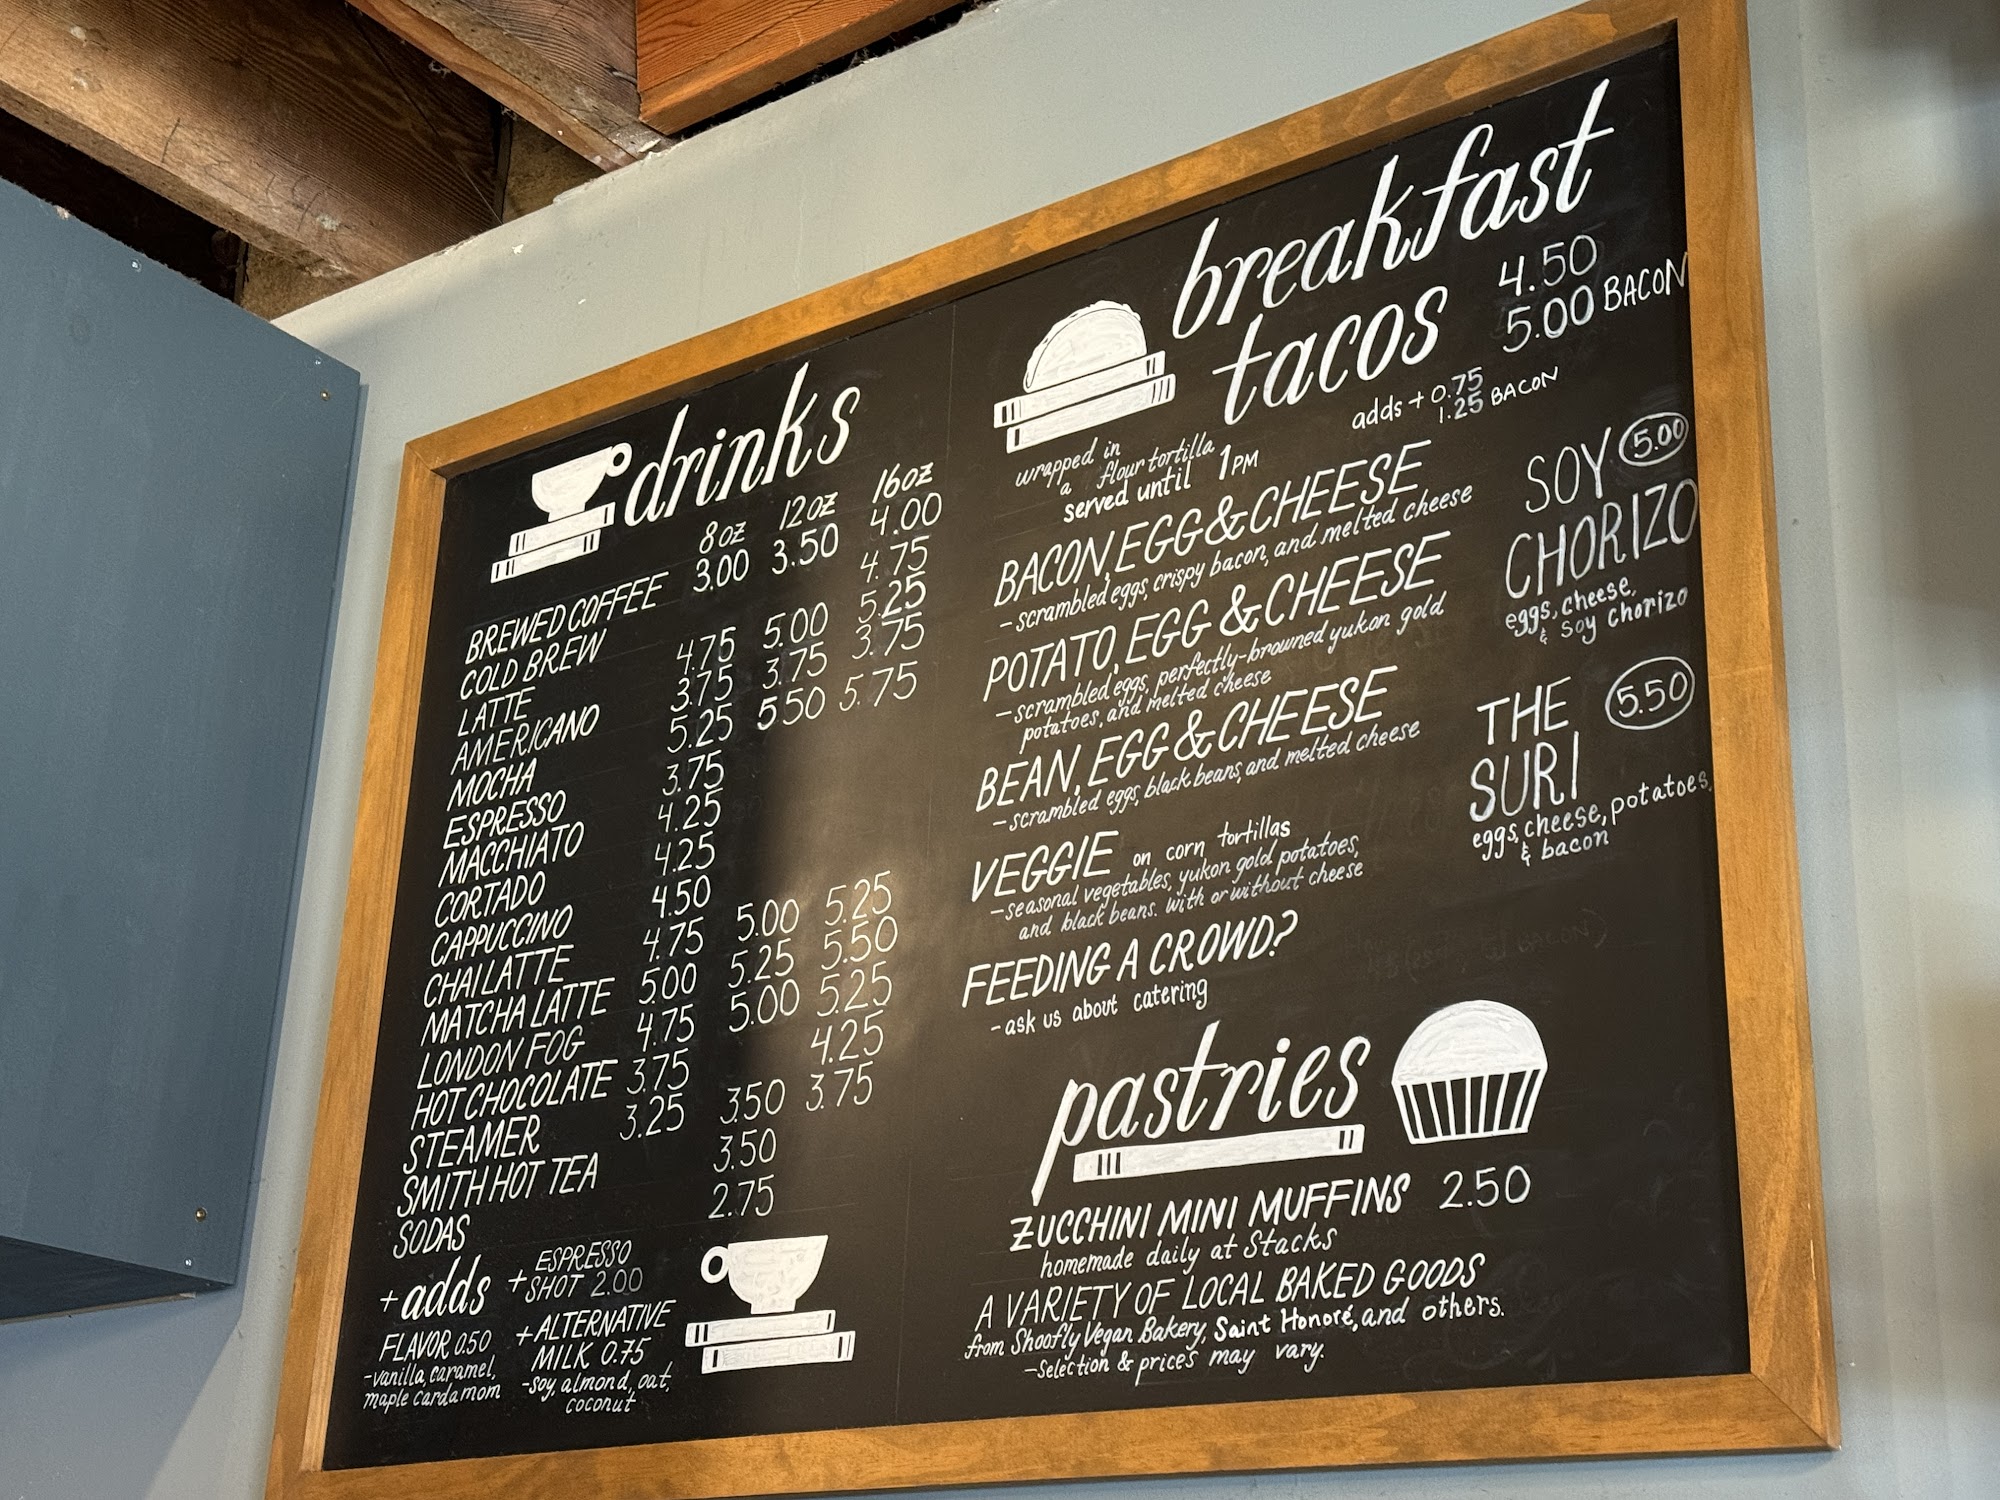 drinks
8oz 12oz 16oz
BREWED COFFEE 3.00 3.50 4.00
COLD BREW 4.75
LATTE 4.75 5.00 5.25
AMERICANO 3.75 3.75 3.75
MOCHA 5.25 5.50 5.75
ESPRESSO 3.75
MACCHIATO 4.25
CORTADO 4.25
CAPPUCCINO 4.50
CHAI LATTE 4.75 5.00 5.25
MATCHA LATTE 5.00 5.25 5.50
LONDON FOG 4.75 5.00 5.25
HOT CHOCOLATE 3.75 4.25
STEAMER 3.25 3.50 3.75
SMITH HOT TEA 3.50
SODAS 2.75
+ adds
FLAVOR 0.50
-vanilla, caramel,
maple cardamom
+ ESPRESSO
SHOT 2.00
+ ALTERNATIVE
MILK 0.75
-soy, almond, oat,
coconut
breakfast
tacos
4.50
5.00 BACON
adds + 0.75
1.25 BACON
wrapped in
a flour tortilla
served until 1PM
BACON, EGG & CHEESE
- scrambled eggs, crispy bacon, and melted cheese
POTATO, EGG & CHEESE
- scrambled eggs, perfectly-browned yukon gold
potatoes, and melted cheese
BEAN, EGG & CHEESE
- scrambled eggs, black beans, and melted cheese
VEGGIE on corn tortillas
- seasonal vegetables, yukon gold potatoes,
and black beans. with or without cheese
FEEDING A CROWD?
- ask us about catering
SOY 5.00
CHORIZO
eggs, cheese,
& soy chorizo
THE 5.50
SURI
eggs, cheese, potatoes,
& bacon
pastries
ZUCCHINI MINI MUFFINS 2.50
homemade daily at Stacks
A VARIETY OF LOCAL BAKED GOODS
from Shoofly Vegan Bakery, Saint Honoré, and others.
-Selection & prices may vary.